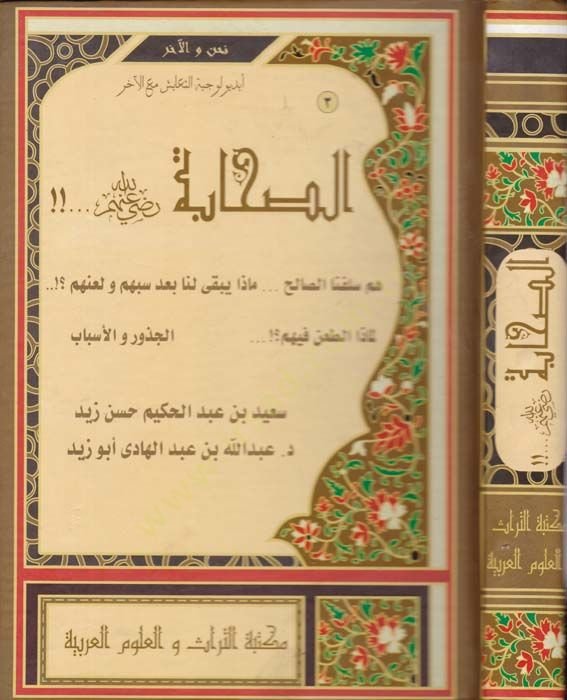 نحن و الآخر
أيديولوجية التعايش مع الآخر
٣
الصحابة رضي الله عنهم ...!!
هم سلفنا الصالح ... ماذا يبقى لنا بعد سبهم و لعنهم ؟!..
لماذا الطعن فيهم؟! ... الجذور و الأسباب
سعيد بن عبد الحكيم حسن زيد
د. عبدالله بن عبد الهادى أبو زيد
مكتبة التراث و العلوم العربية
الصحابة رضي الله عنهم ...!!
مكتبة التراث
العلوم العربية